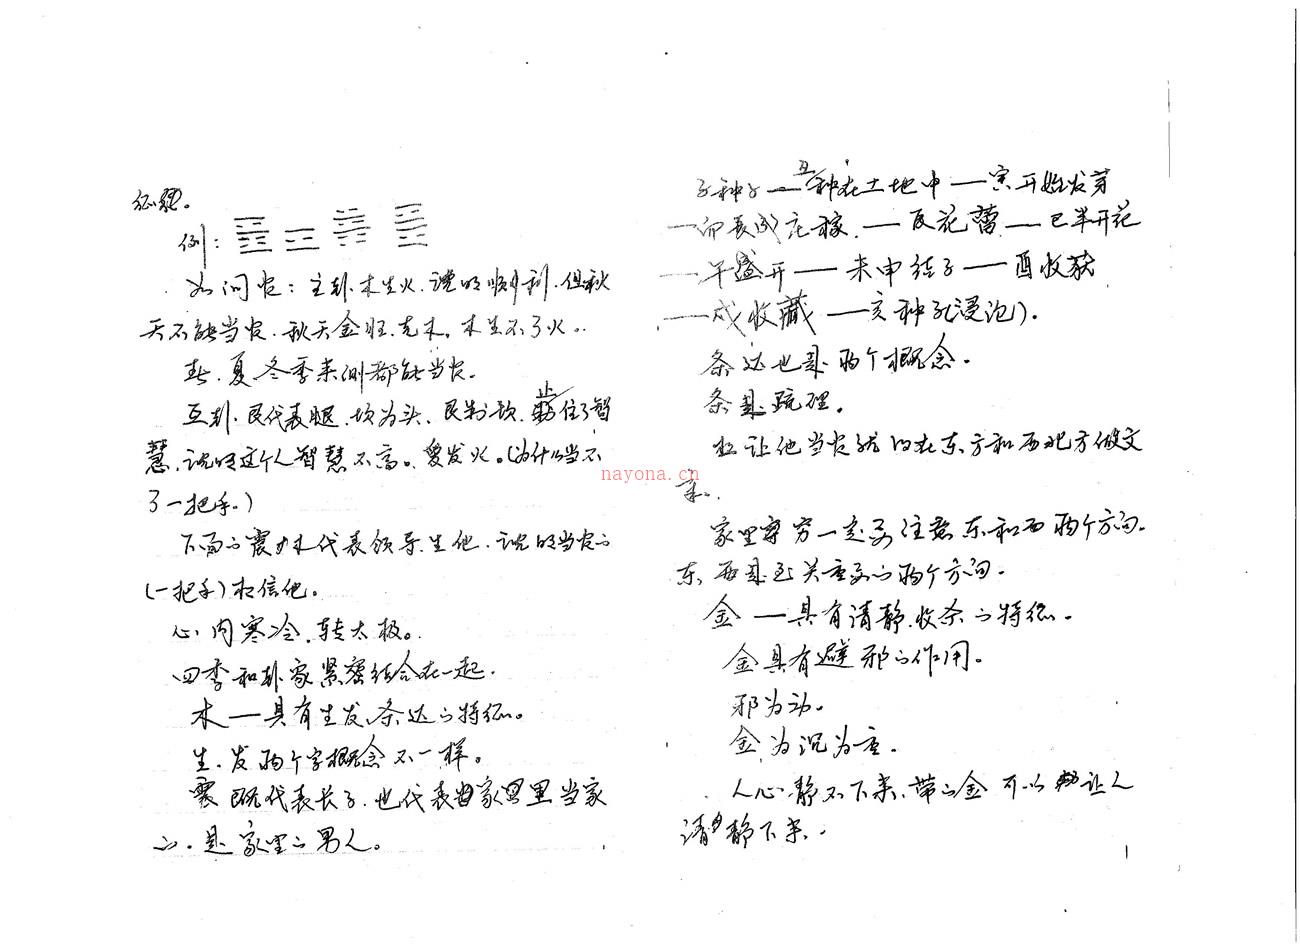 征兆。
例：
如问官：主卦.木生火.说明顺利.但秋
天不能当官.秋天金旺.克木.木生不了火.
春.夏.冬季来测都能当官.
互卦.艮代表腿.坎为头.艮制坎.止住了智
慧.说明这个人智慧不高。爱发火。(为什么当不
了一把手。)
下面的震为木代表领导.生他.说明当官的
(一把手)相信他。
心内寒冷.转太极。
四季和卦象紧密结合在一起.
木——具有生发.条达的特征。
生.发两个字概念不一样。
震既代表长子.也代表家里当家
的.是家里的男人。
子种子——丑种在土地中——寅开始发芽
——卯长成庄稼.——辰花蕾——巳半开花
——午盛开——未申结子——酉收获
——戌收藏——亥种子(浸泡).
条达也是两个概念.
条是疏理.
想让他当官就的在东方和西北方做文
章.
家里穷一定要注意东和西两个方向.
东.西是至关重要的两个方向.
金——具有清静.收杀的特征.
金具有避邪的作用.
邪为动.
金为沉为重.
人心静不下来.带的金可以让人
清静下来.
nayona.cn